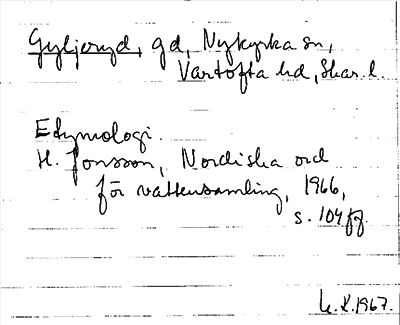 Gyljeryd, gd, Nykyrka sn,
Vartofta hd, Skar. l.
Etymologi.
H. Jonsson, Nordiska ord
för vattensamling, 1966,
s. 104 ff.
1967.